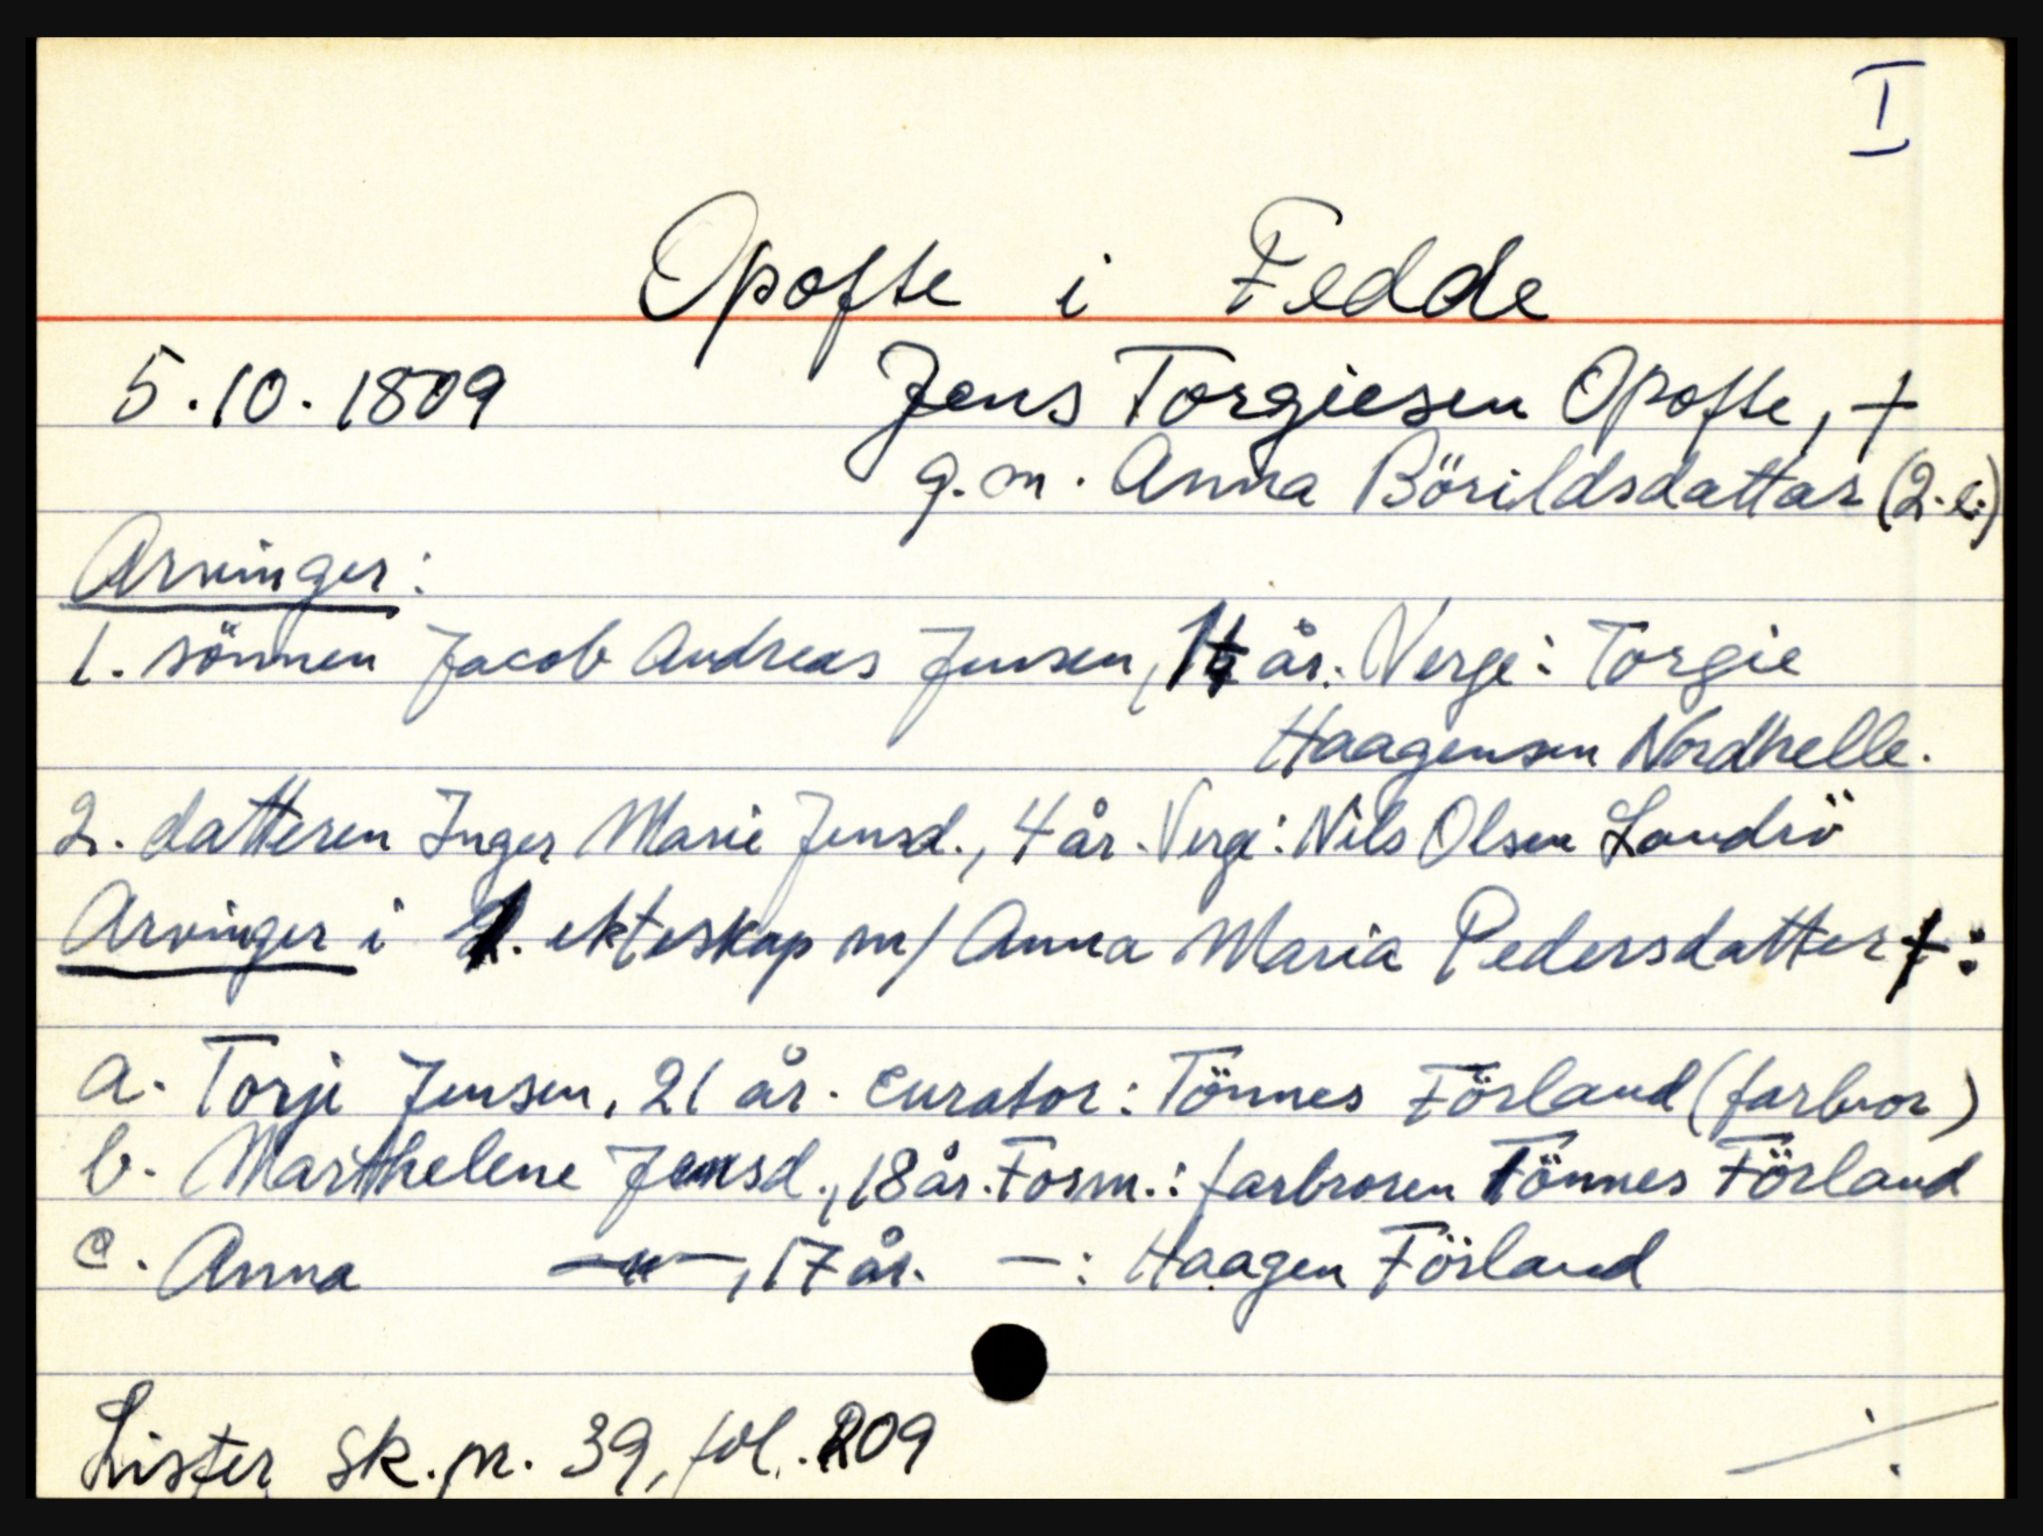 I
Opofte i Fedde
5.10.1809 Jens Torgiesen Opofte, +
g. m. Anna Börildsdatter (2.e.)
Arvinger:
1. sönnen Jacob Andreas Jensen, år. Verge: Torgie
Haagensen Nordhelle.
2. datteren Inger Marie Jensd., 4 år. Verge: Nils Olsen Landrö
Arvinger i 1. ekteskap m/ Anna Maria Pedersdatter +:
a. Torje Jensen, 21 år. Curator: Tönnes Förland (farbror)
b. Marthelene Jensd., 18 år. Form.: farbroren Tönnes Förland
c. Anna —"—, 17 år. —: Haagen Förland
Lister sk.pr. 39, fol. 209
./.